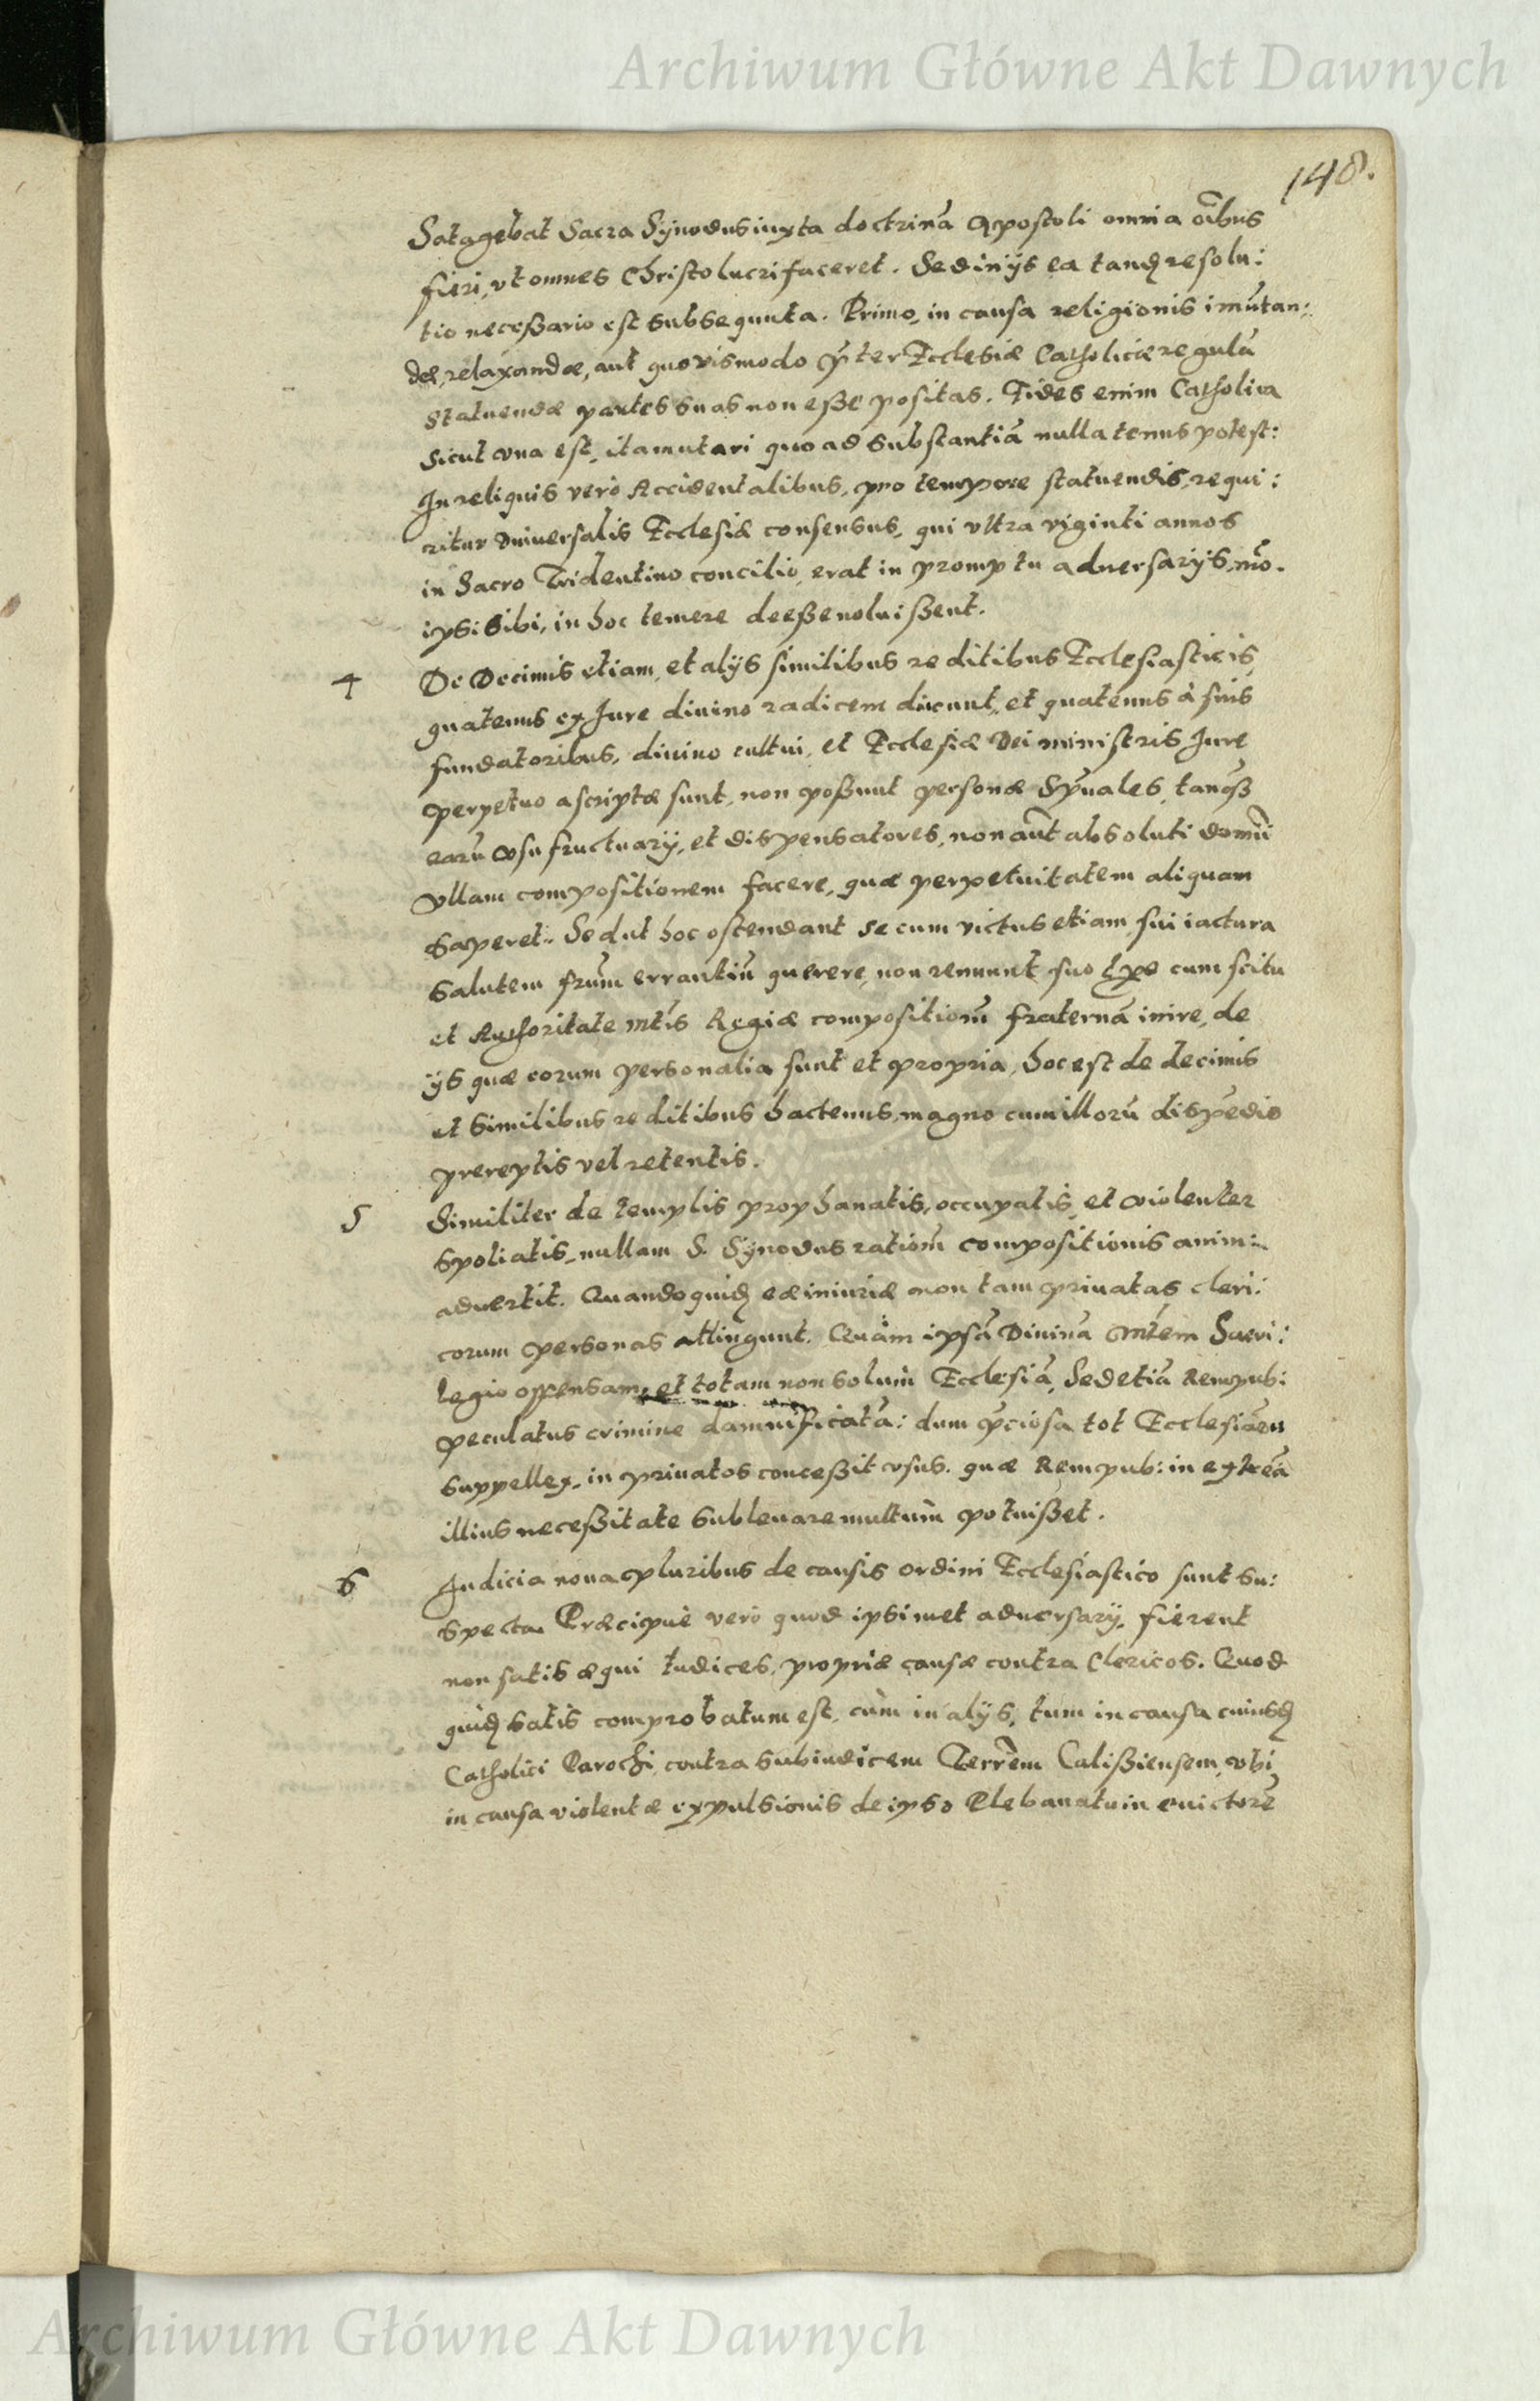 Archiwum Główne Akt Dawnych
148.
Satagebat Sacra Synodus iuxta doctrinã Apostoli omnia oĩbus
fieri, vt omnes Christo lucrifaceret. Sed in ijs ea tandẽ resolu:
tio necessario est subsequuta. Primo, in causa religionis imutan:
dæ, relaxandæ, aut quovis modo p̃ter Ecclesiæ Catholicæ regulã
statuendæ partes suas non esse positas. Fides enim Catholica
sicut vna est, ita mutari quo ad substantiã nullatenus potest:
In reliquis verò Accidentalibus, pro tempore statuendis, requi:
ritur Vniuersalis Ecclesiæ consensus, qui vltra viginti annos
in Sacro Tridentino concilio, erat in promptu aduersarijs, mõ.
ipsi sibi, in hoc temere deesse noluissent.
4 De Decimis etiam, et alijs similibus reditibus Ecclesiasticis,
quatenus ex Jure diuino radicem ducunt, et quatenus à suis
fundatoribus, diuino cultui, et Ecclesiæ Dei ministris Jure
perpetuo ascriptæ sunt, non possunt personæ Sp̃uales, tanqȝ
earũ vsufructuarij, et dispensatores, non aũt absoluti domĩi
vllam compositionem facere, quæ perpetuitatem aliquam
saperet. Sed ut hoc ostendant se cum victus etiam sui iactura
salutem fr̃um errantiũ querere, non renuunt suo tp̃e cum scitu
et Authoritate Mt̃is Regiæ compositioñ fraternã inire, de
ijs quæ eorum personalia sunt et propria, hoc est de decimis
et similibus reditibus hactenus, magno cum illorũ disp̃edio
prereptis vel retentis.
5 Similiter de templis prophanatis, occupatis, et violenter
spoliatis, nullam S. Synodus ratioñ compositionis anim:
aduertit. Quandoquidẽ eæ iniuriæ non tam priuatas cleri:
corum personas attingunt. Quàm ipsã Diuinã Mt̃em Sacri:
legio offensam, et totam non solum Ecclesiã, Sed etiã Rempub:
peculatus crimine damnificatã: dum p̃ciosa tot Ecclesiarũ
suppellex, in priuatos concessit vsus. quæ Rempub: in extreã
illius necessitate subleuare multum potuisset.
6 Judicia noua pluribus de causis ordini Ecclesiastico sunt su:
specta. Præcipuè verò quod ipsimet aduersarij, fierent
non satis æqui Iudices, propriæ causæ contra Clericos. Quod
quidẽ satis comprobatum est, cùm in alijs, tum in causa cuiusdẽ
Catholici Parochi, contra Subiudicem Terrẽm Calissiensem, vbi
in causa violentæ expulsionis de ipso Plebanatu in euictorẽ
Archiwum Główne Akt Dawnych